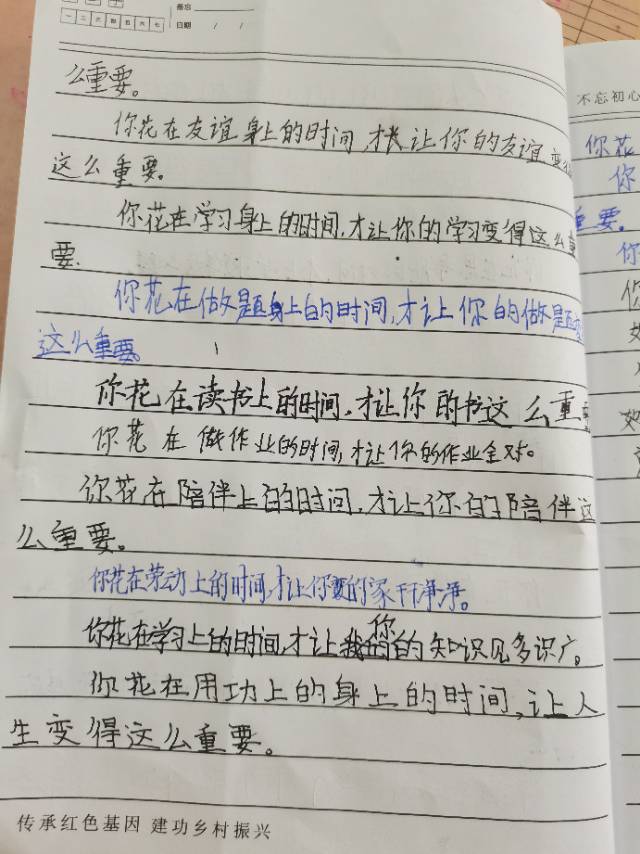 备忘
一 二 三 四 五 六 七 日期 / /
么重要。
不忘初心
你花在友谊身上的时间,才让你的友谊变得
你花
这么重要。
你
你花在学习身上的时间,才让你的学习变得这么重
重要。
要。
你
你花在做题身上的时间,才让你的做题变
你
这么重要。
你花在读书上的时间,才让你的书这么重要
你花在做作业的时间,才让你的作业全对。
你花在陪伴上的时间,才让你的陪伴这
么重要。
你花在劳动上的时间,才让你的家干干净净。
你花在学习上的时间,才让你的知识见多识广。
你花在用功上的身上的时间,让人
生变得这么重要。
传承红色基因 建功乡村振兴